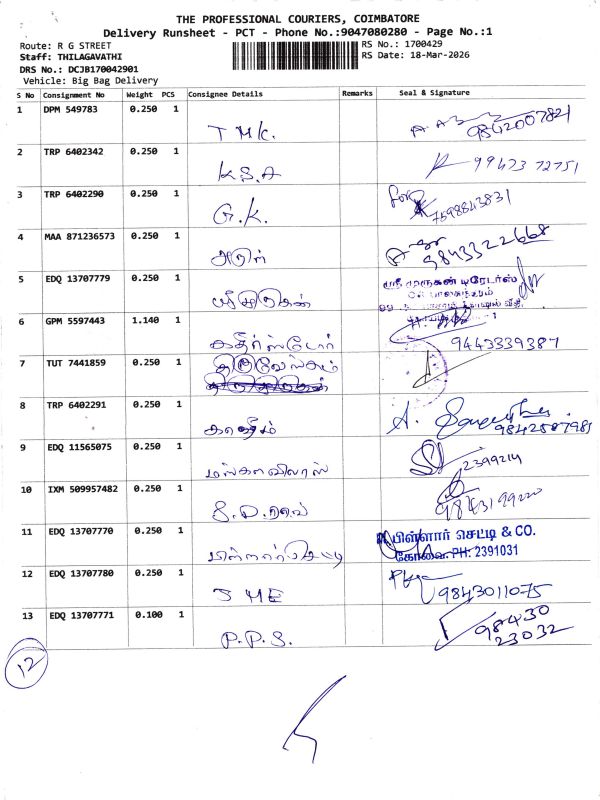 THE PROFESSIONAL COURIERS, COIMBATORE
Delivery Runsheet - PCT - Phone No.:9047080280 - Page No.:1
Route: R G STREET
RS No.: 1700429
Staff: THILAGAVATHI
RS Date: 18-Mar-2026
DRS No.: DCJB170042901
Vehicle: Big Bag Delivery
S No Consignment No Weight PCS Consignee Details Remarks Seal & Signature
1 DPM 549783 0.250 1 T M K. 9842007821
2 TRP 6402342 0.250 1 K.S.A 99473 72751
3 TRP 6402290 0.250 1 G.K. 7598843831
4 MAA 871236573 0.250 1 அருள் 9843322668
5 EDQ 13707779 0.250 1 ஸ்ரீமுருகன் ஸ்ரீ முருகன் டிரேடர்ஸ்
6 GPM 5597443 1.140 1 கதிர் ஸ்டோர் 9443339387
7 TUT 7441859 0.250 1
8 TRP 6402291 0.250 1 9842507981
9 EDQ 11565075 0.250 1 மங்களவிலாஸ் 2399214
10 IXM 509957482 0.250 1 S.D. 9843199220
11 EDQ 13707770 0.250 1 பிள்ளார் செட்டி பிள்ளார் செட்டி & CO.
கோவை. PH: 2391031
12 EDQ 13707780 0.250 1 J M E 9843011075
13 EDQ 13707771 0.100 1 P.P.S. 98430
23032
12